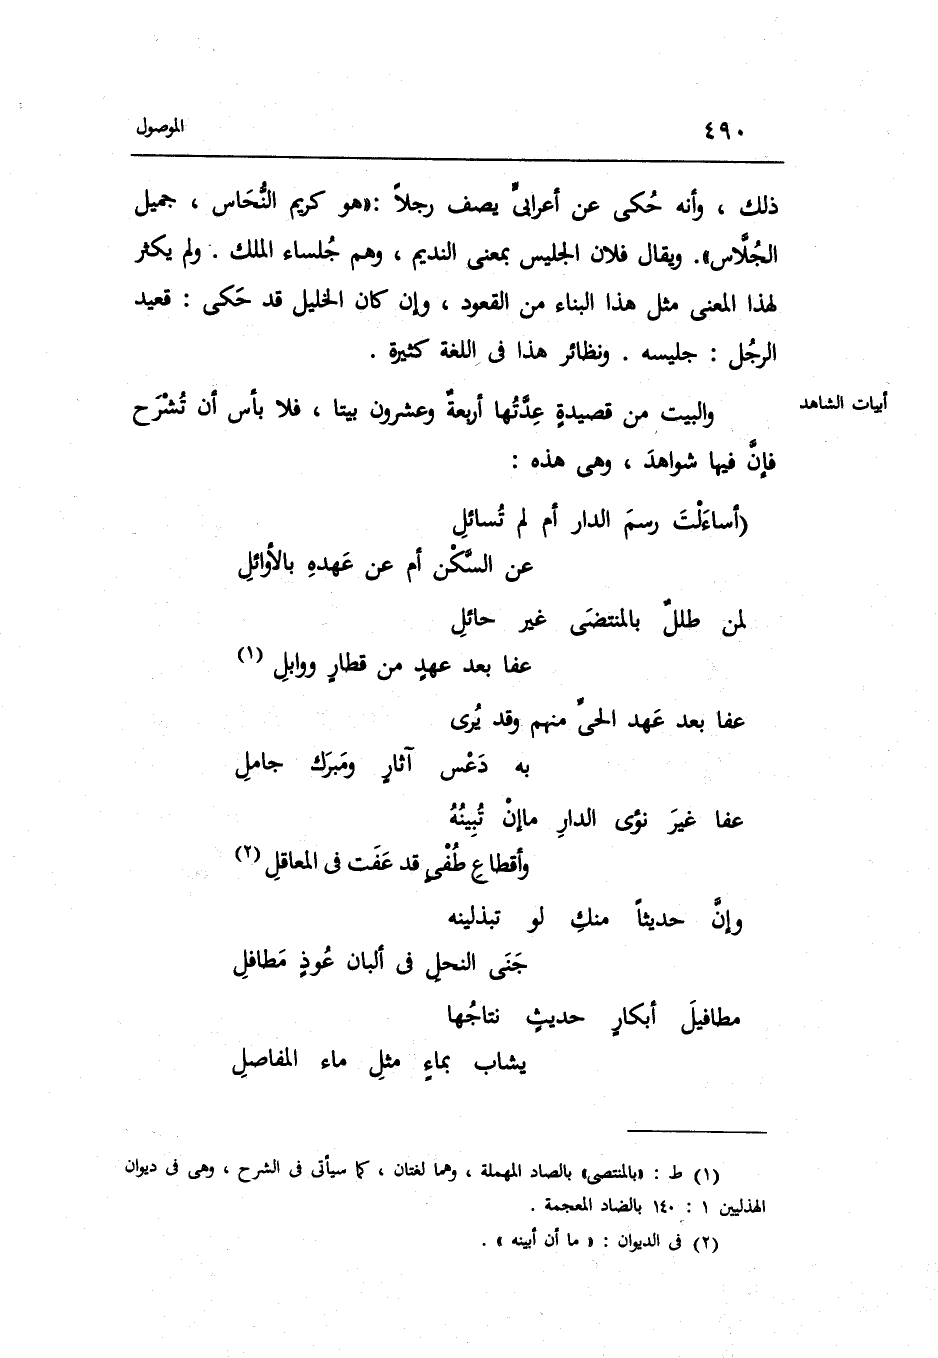 ٤٩٠
الموصول
ذلك ، وأنه حُكى عن أعرابىٍّ يصف رجلاً :«هو كريم النُّحَاس ، جميل
الجُلَّاس». ويقال فلان الجليس بمعنى النديم ، وهم جُلساء الملك . ولم يكثر
لهذا المعنى مثل هذا البناء من القعود ، وإن كان الخليل قد حَكى : قعيد
الرجُل : جليسه . ونظائر هذا فى اللغة كثيرة .
أبيات الشاهد
والبيت من قصيدةٍ عِدَّتُها أربعةٌ وعشرون بيتا ، فلا بأس أن تُشْرَح
فإنَّ فيها شواهدَ ، وهى هذه :
(أساءَلْتَ رسمَ الدار أم لم تُسائلِ
عن السَّكْن أم عن عَهدهِ بالأوائلِ
لمن طللٌ بالمنتضَى غير حائلِ
عفا بعد عهدٍ من قطارٍ ووابلِ (١)
عفا بعد عَهد الحىِّ منهم وقد يُرى
به دَعْس آثارٍ ومَبرَك جاملِ
عفا غيرَ نؤى الدارِ ماإنْ تُبِينُهُ
وأقطاعِ طُفْىٍ قد عَفَت فى المعاقلِ (٢)
وإنَّ حديثاً منكِ لو تبذلينه
جَنَى النحلِ فى ألبان عُوذٍ مَطافلِ
مطافيلَ أبكارٍ حديثٍ نتاجُها
يشاب بماءٍ مثلِ ماء المفاصلِ
(١) ط : «بالمنتصى» بالصاد المهملة ، وهما لغتان ، كما سيأتى فى الشرح ، وهى فى ديوان
الهذليين ١ : ١٤٠ بالضاد المعجمة .
(٢) فى الديوان : « ما أن أبينه » .